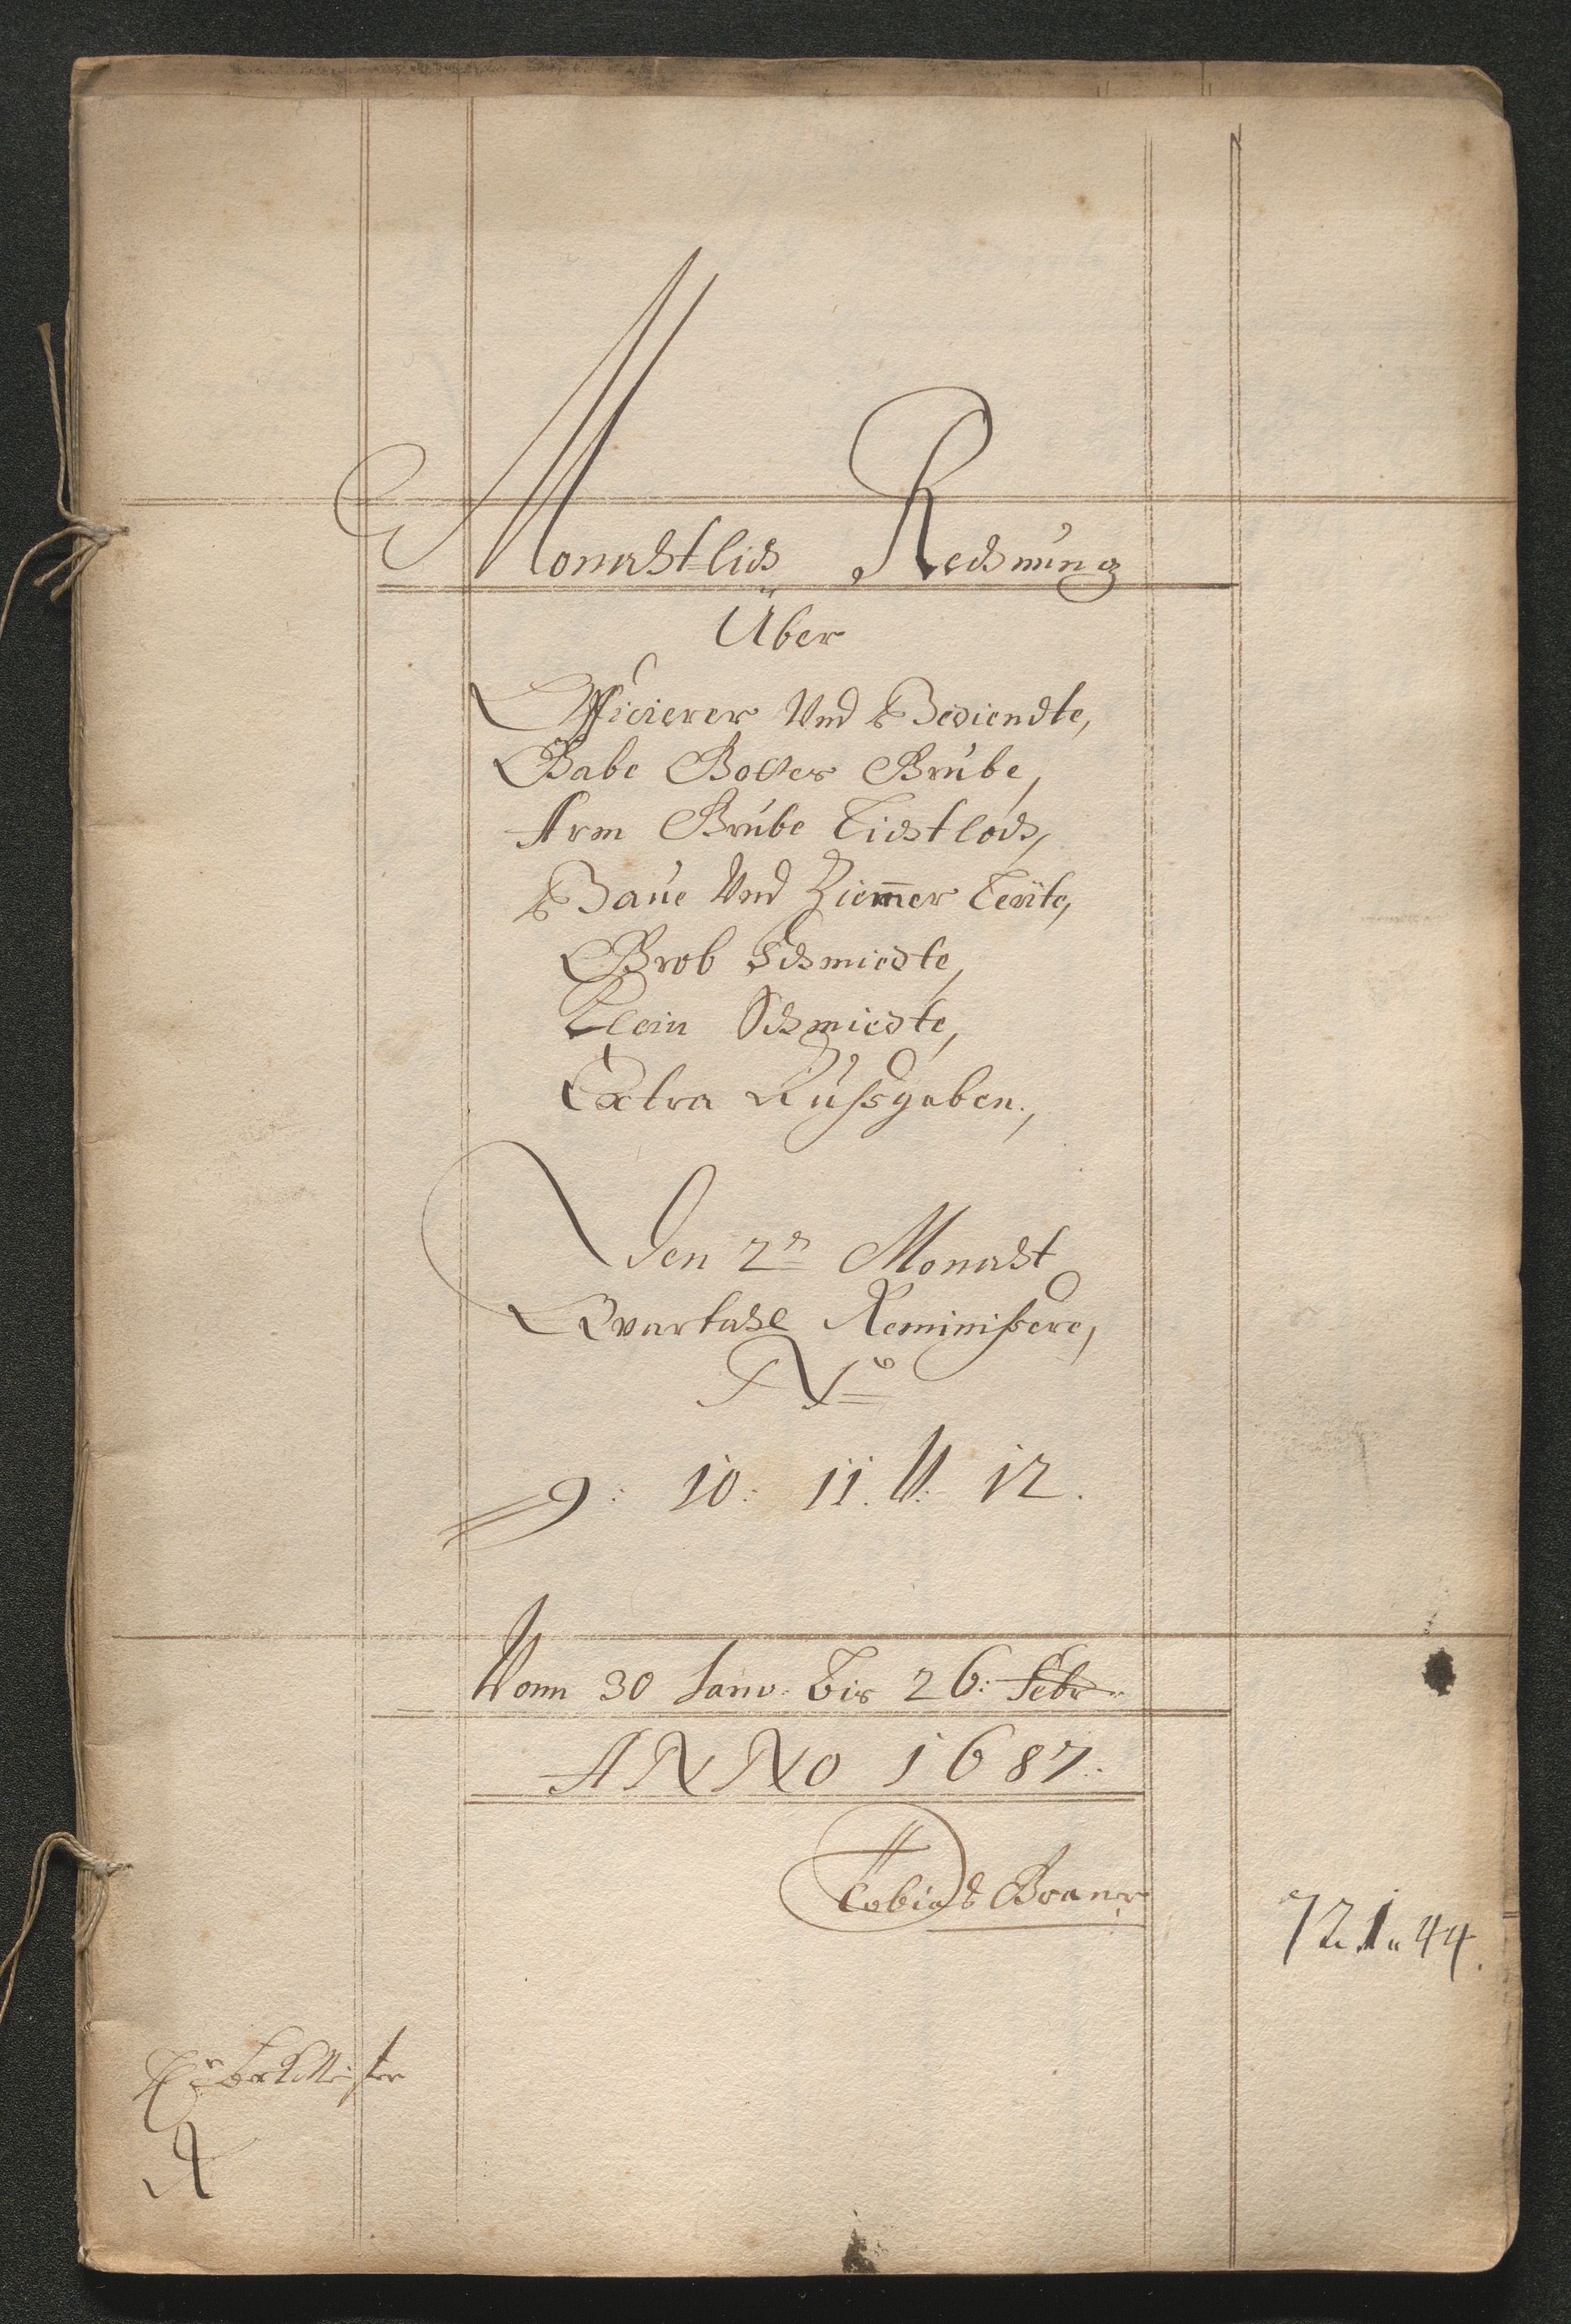 Monahtlich Rechnung
Über
Officierer Und Bediendte,
Gabe Gottes Grube,
Arm Grube Lichtloch,
Baue Und Ziem̄er Leüte,
Grob Schmiedte,
Klein Schmiedte,
Extra Außgaben.,
Den 2n Monaht
Qvartahl Reminißcere,
No
9: 10: 11. U: 12.
Vonn 30 Janv: bis 26: Febr:
ANNO 1687.
Tobias Braner
721 " 44.
A